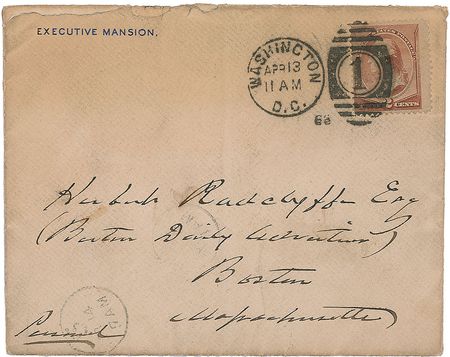 EXECUTIVE MANSION.
WASHINGTON
APR 13
11 AM
D.C.
1
2 CENTS
Herbert Radclyffe Esq
(Boston Daily Advertiser)
Boston
Massachusetts
Personal